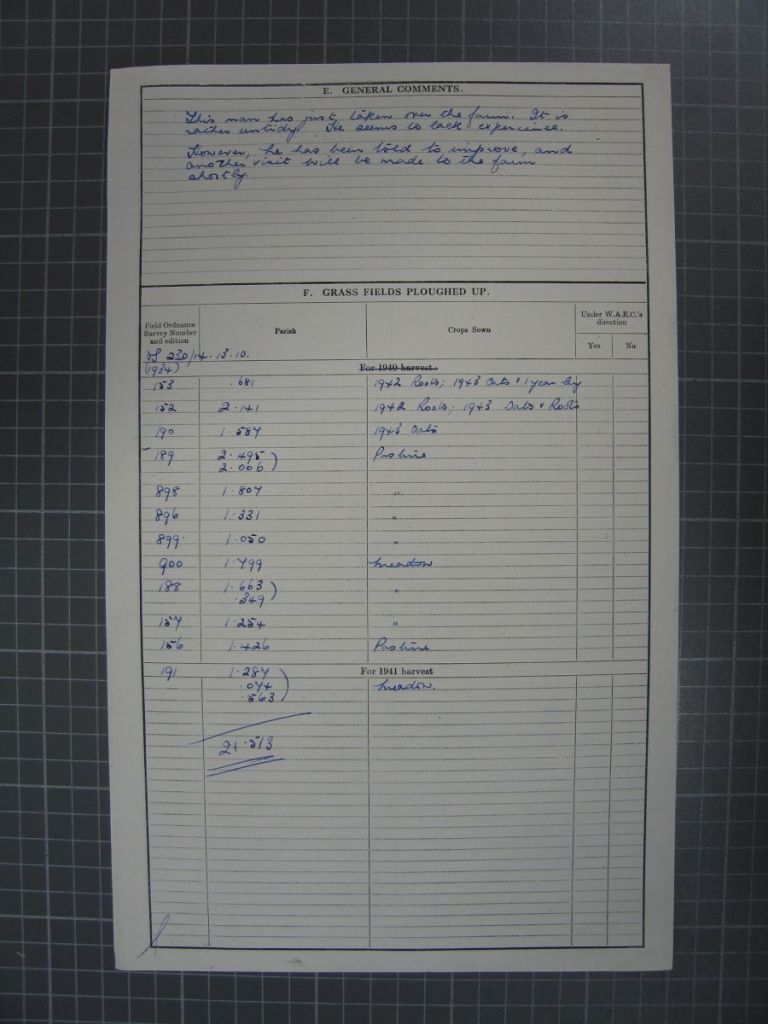 E. GENERAL COMMENTS.
This man has just taken over the farm. It is
rather untidy. He seems to lack experience.
However, he has been told to improve, and
another visit will be made to the farm
shortly.
F. GRASS FIELDS PLOUGHED UP.
Field Ordnance Survey Number and edition
Parish
Crops Sown
Under W.A.E.C.'s direction
Yes
No
OS 230/14. 13. 10.
(1934)
For 1940 harvest.
153 .681 1942 Roots; 1943 Oats & 1 year ley
152 2.141 1942 Roots; 1943 Oats & Roots
190 1.587 1943 Oats
189 2.495 ) Pasture
2.006 )
898 1.807 "
896 1.331 "
899 1.050 "
900 1.799 Meadow
188 1.663 ) "
.349 )
157 1.254 "
156 1.426 Pasture
191 1.287 For 1941 harvest
.074 ) Meadow.
.563
21.513